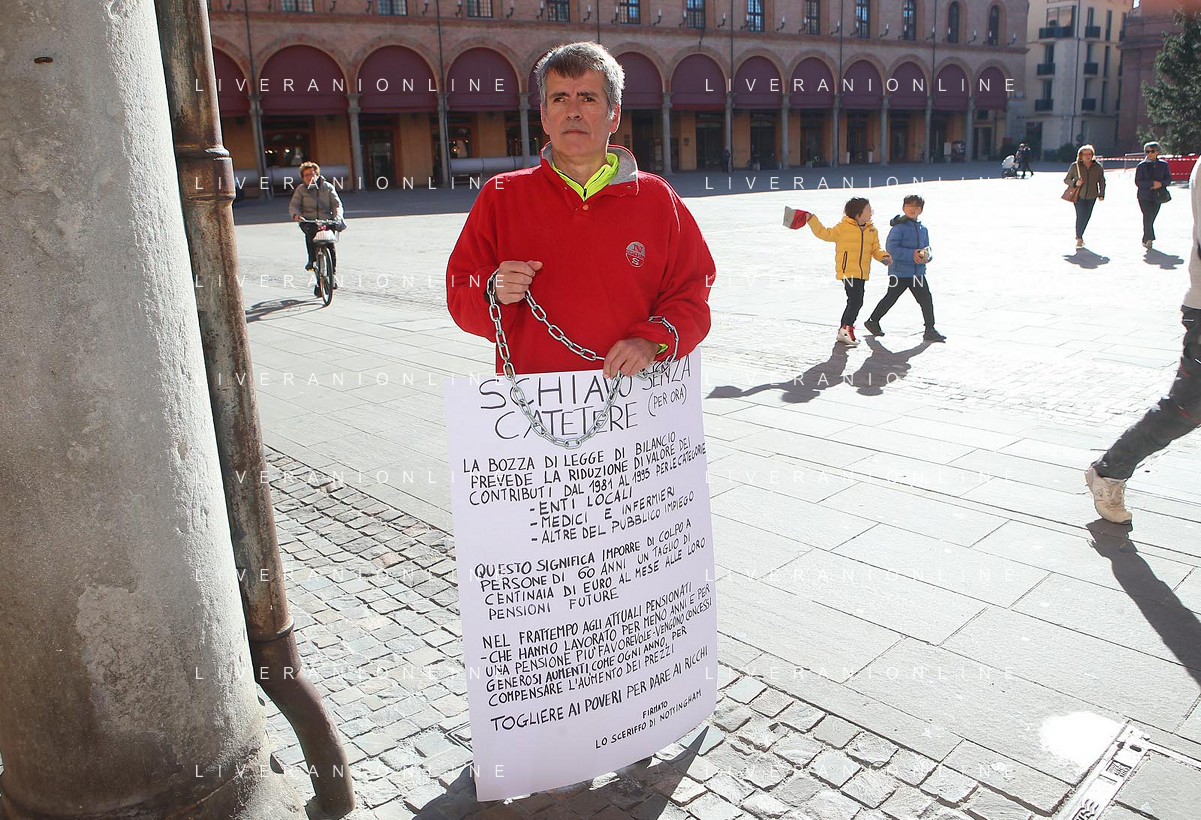 LIVERANIONLINE LIVERANIONLINE
LIVERANIONLINE LIVERANIONLINE
LIVERANIONLINE LIVERANIONLINE
LIVERANIONLINE LIVERANIONLINE
LIVERANIONLINE LIVERANIONLINE
LIVERANIONLINE LIVERANIONLINE
LIVERANIONLINE LIVERANIONLINE
LIVERANIONLINE LIVERANIONLINE
N
S
SCHIAVO SENZA
CATETERE (PER ORA)
LA BOZZA DI LEGGE DI BILANCIO
PREVEDE LA RIDUZIONE DI VALORE DEI
CONTRIBUTI DAL 1981 AL 1995 PER LE CATEGORIE
- ENTI LOCALI
- MEDICI E INFERMIERI
- ALTRE DEL PUBBLICO IMPIEGO
QUESTO SIGNIFICA IMPORRE DI COLPO A
PERSONE DI 60 ANNI UN TAGLIO DI
CENTINAIA DI EURO AL MESE ALLE LORO
PENSIONI FUTURE
NEL FRATTEMPO AGLI ATTUALI PENSIONATI
- CHE HANNO LAVORATO PER MENO ANNI E PER
UNA PENSIONE PIU' FAVOREVOLE - VENGONO CONCESSI
GENEROSI AUMENTI COME OGNI ANNO, PER
COMPENSARE L'AUMENTO DEI PREZZI
TOGLIERE AI POVERI PER DARE AI RICCHI
FIRMATO
LO SCERIFFO DI NOTTINGHAM